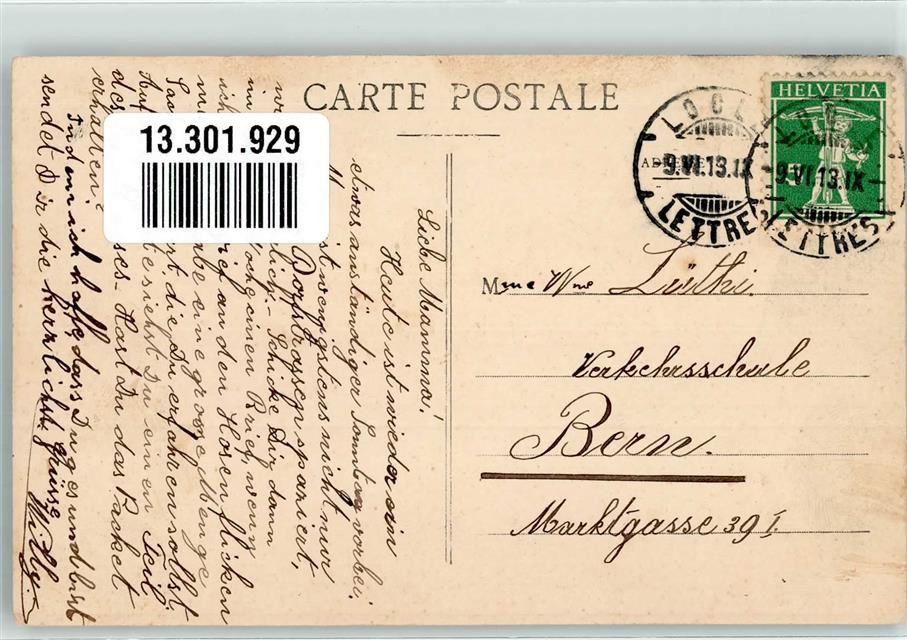 CARTE POSTALE
13.301.929
HELVETIA
LOCLE
9.VI.13.IX
LETTRES
9.VI.13.IX
LETTRES
Mme Wwe Lüthi.
Verkehrsschule
Bern.
Marktgasse 39 I.
Liebe Mamma!
Heute ist wieder ein
etwas anständiger Sonntag vorbei.
ist wenigstens nicht nur
Dorfstrasse spaziert,
Schicke Dir dann
noch einen Brief, wenn
ich an den Hosen flicken
habe eine grosse Menge
die Du erfahren sollst.
siehst Du einen Teil
des Hast Du das Packet
erhalten?
Indem ich hoffe, dass Du gesund bist
sendet Dir die herrlichst. Grüsse
Willy.